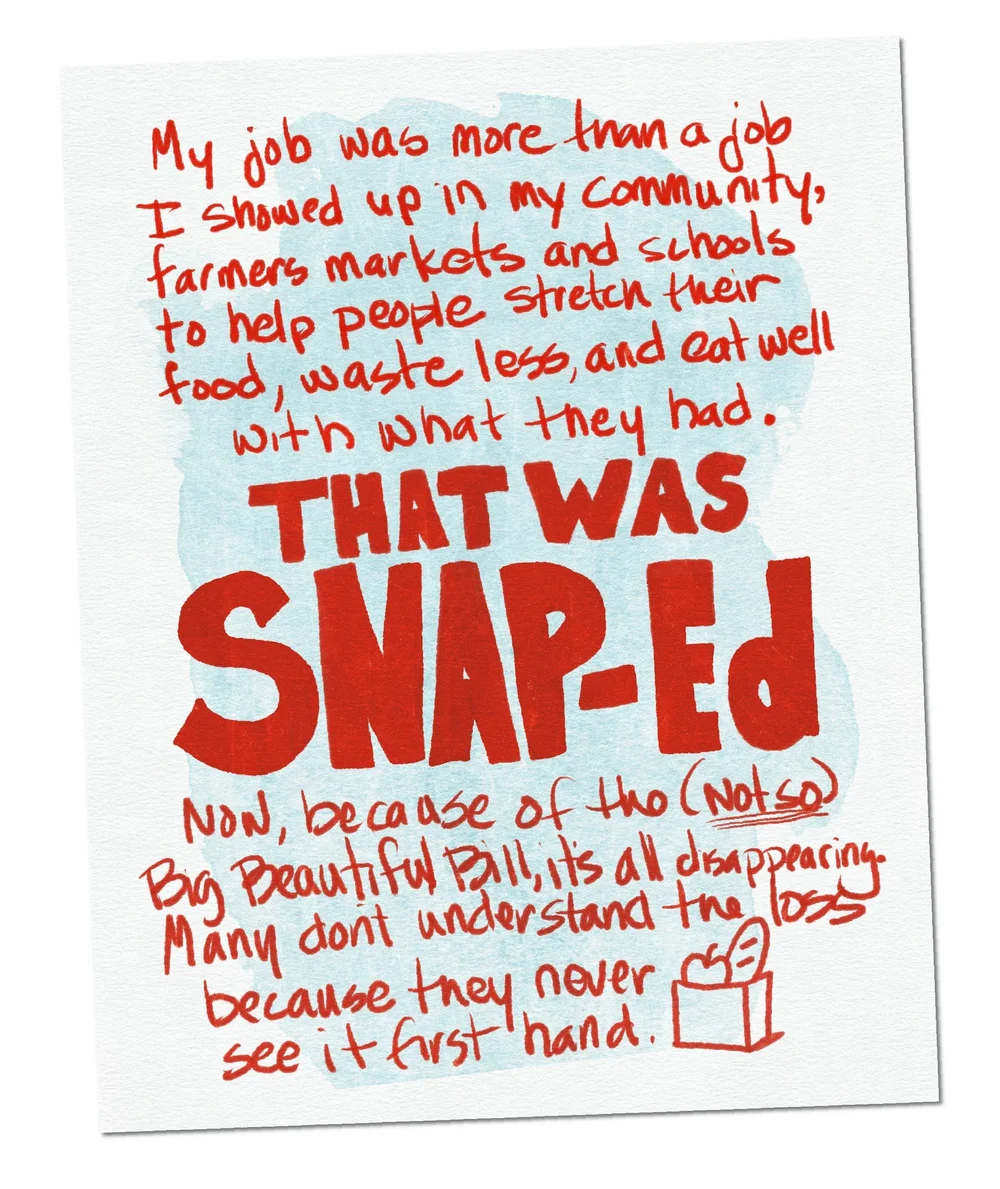 My job was more than a job
I showed up in my community,
farmers markets and schools
to help people stretch their
food, waste less, and eat well
with what they had.
THAT WAS
SNAP-Ed
Now, because of the (Not so)
Big Beautiful Bill, it's all disappearing.
Many don't understand the loss
because they never
see it first hand.